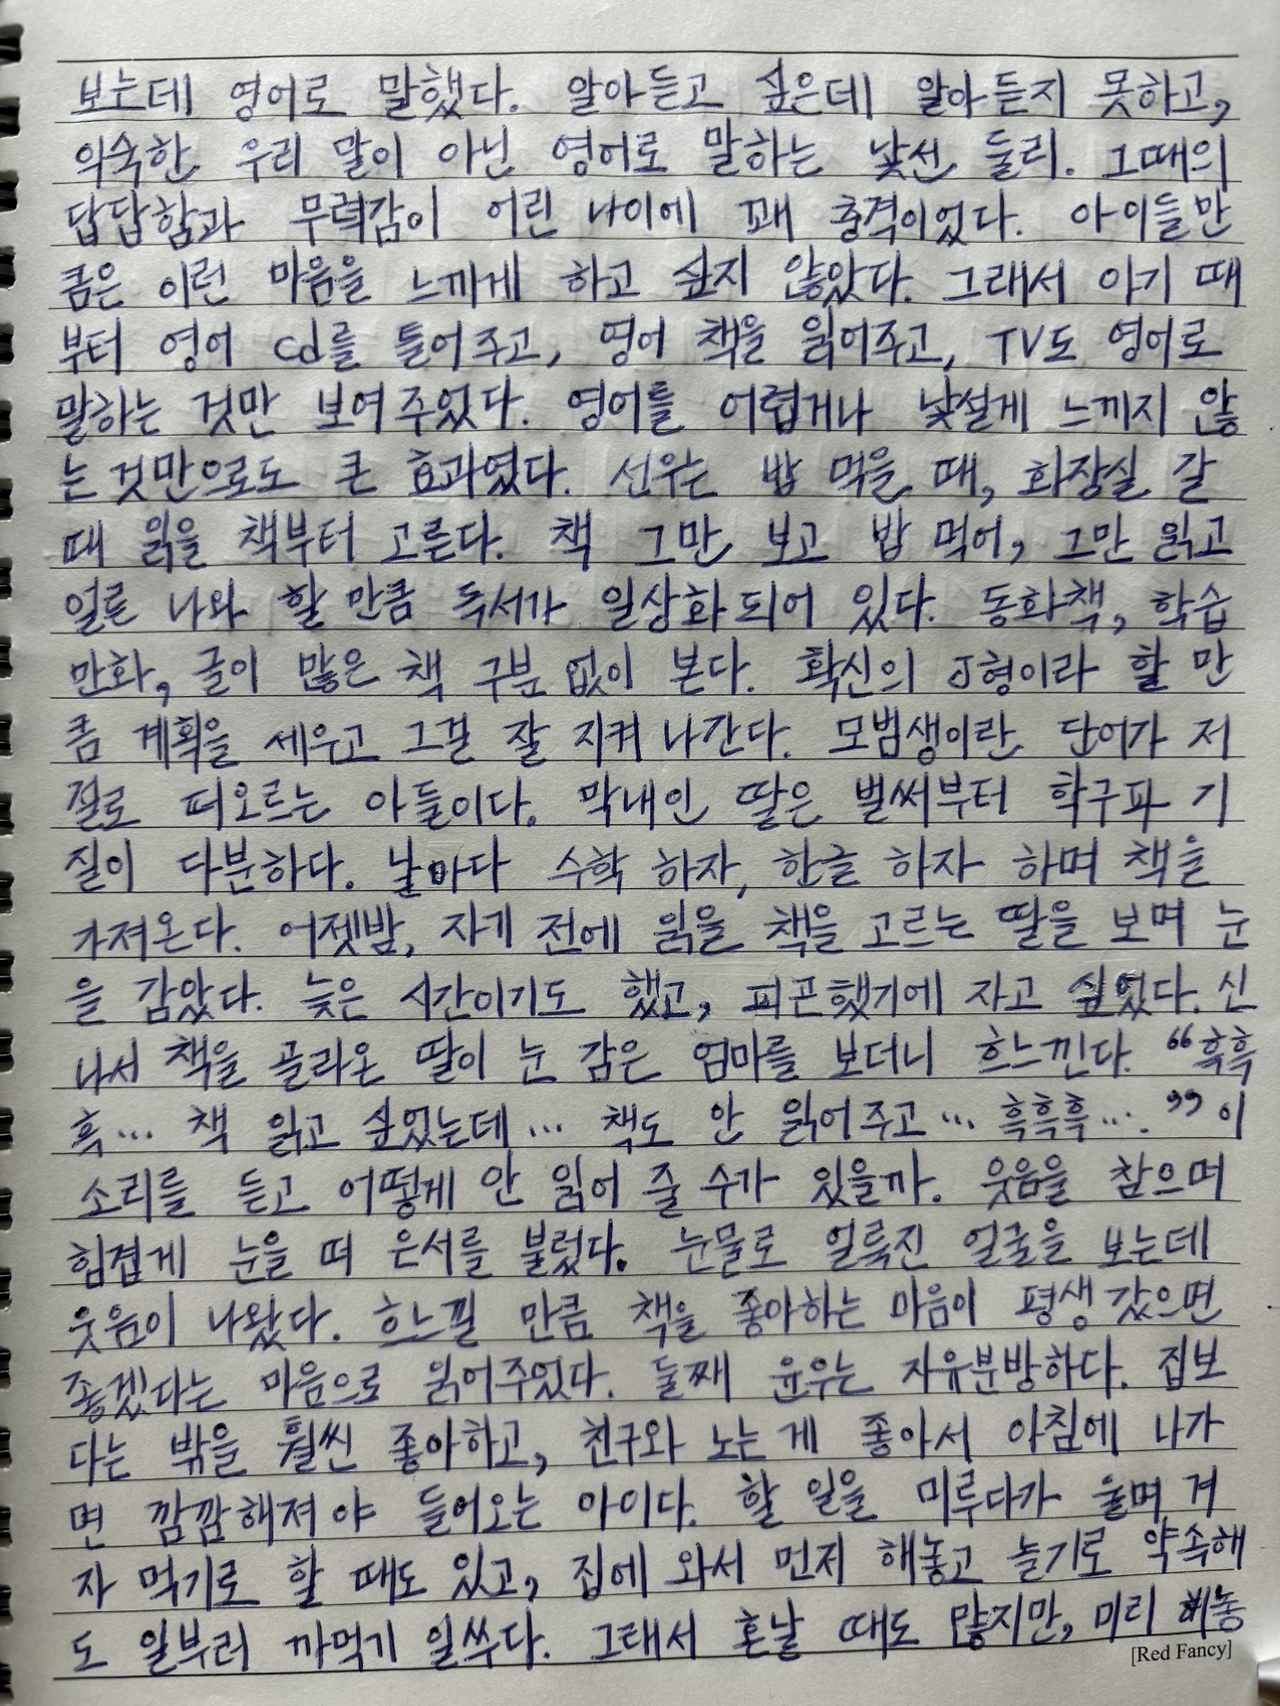 보는데 영어로 말했다. 알아듣고 싶은데 알아듣지 못하고,
익숙한 우리 말이 아닌 영어로 말하는 낯선 둘리. 그때의
답답함과 무력감이 어린 나이에 꽤 충격이었다. 아이들만
큼은 이런 마음을 느끼게 하고 싶지 않았다. 그래서 아기 때
부터 영어 cd를 틀어주고, 영어 책을 읽어주고, TV도 영어로
말하는 것만 보여주었다. 영어를 어렵거나 낯설게 느끼지 않
는 것만으로도 큰 효과였다. 선우는 밥 먹을 때, 화장실 갈
때 읽을 책부터 고른다. 책 그만 보고 밥 먹어, 그만 읽고
얼른 나와 할 만큼 독서가 일상화되어 있다. 동화책, 학습
만화, 글이 많은 책 구분 없이 본다. 확신의 J형이라 할 만
큼 계획을 세우고 그걸 잘 지켜 나간다. 모범생이란 단어가 저
절로 떠오르는 아들이다. 막내인 딸은 벌써부터 학구파 기
질이 다분하다. 날마다 수학 하자, 한글 하자 하며 책을
가져온다. 어젯밤, 자기 전에 읽을 책을 고르는 딸을 보며 눈
을 감았다. 늦은 시간이기도 했고, 피곤했기에 자고 싶었다. 신
나서 책을 골라온 딸이 눈 감은 엄마를 보더니 흐느낀다. “흑흑
흑... 책 읽고 싶었는데... 책도 안 읽어주고... 흑흑흑....” 이
소리를 듣고 어떻게 안 읽어 줄 수가 있을까. 웃음을 참으며
힘겹게 눈을 떠 은서를 불렀다. 눈물로 얼룩진 얼굴을 보는데
웃음이 나왔다. 흐느낄 만큼 책을 좋아하는 마음이 평생 갔으면
좋겠다는 마음으로 읽어주었다. 둘째 윤우는 자유분방하다. 집보
다는 밖을 훨씬 좋아하고, 친구와 노는 게 좋아서 아침에 나가
면 깜깜해져야 들어오는 아이다. 할 일을 미루다가 울며 겨
자 먹기로 할 때도 있고, 집에 와서 먼저 해놓고 놀기로 약속해
도 일부러 까먹기 일쑤다. 그래서 혼날 때도 많지만, 미리 해놓
[Red Fancy]